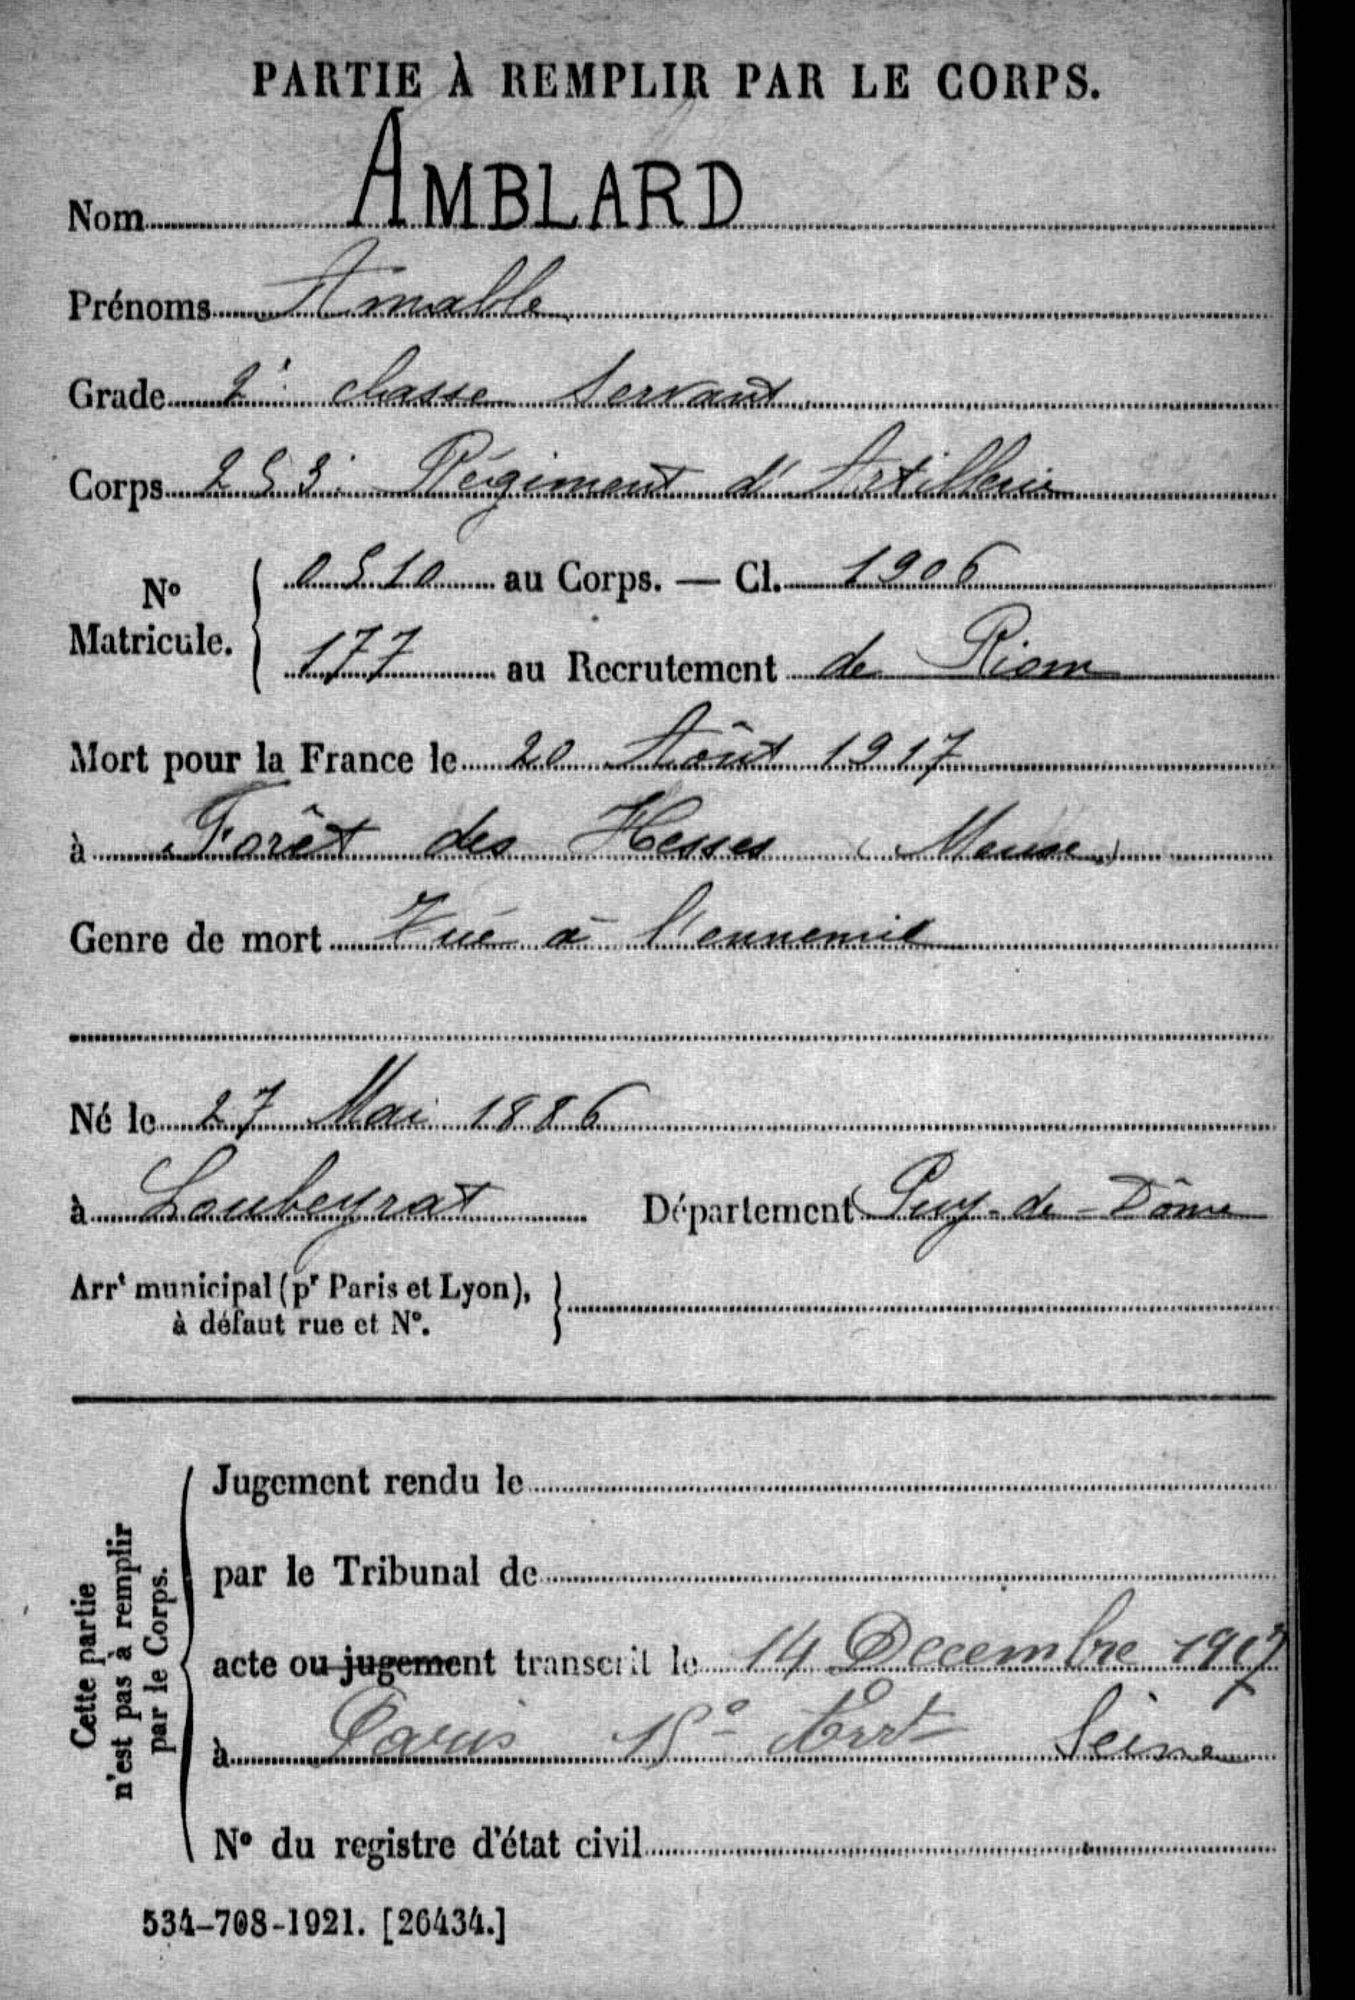 PARTIE À REMPLIR PAR LE CORPS.
Nom AMBLARD
Prénoms Amable
Grade 2e classe Servant
Corps 253e Régiment d'Artillerie
N° Matricule. { 0510 au Corps. — Cl. 1906
177 au Recrutement de Riom
Mort pour la France le 20 Aôut 1917
à Forêt des Hesses (Meuse)
Genre de mort Tué à l'ennemie
Né le 27 Mai 1886
à Loubeyrat Département Puy-de-Dôme
Arrt municipal (pr Paris et Lyon), }
à défaut rue et N°.
Cette partie
n'est pas à remplir
par le Corps.
Jugement rendu le
par le Tribunal de
acte ou jugement transcrit le 14 Decembre 1917
à Paris 15e Arrt Seine
N° du registre d'état civil
534-708-1921. [26434.]